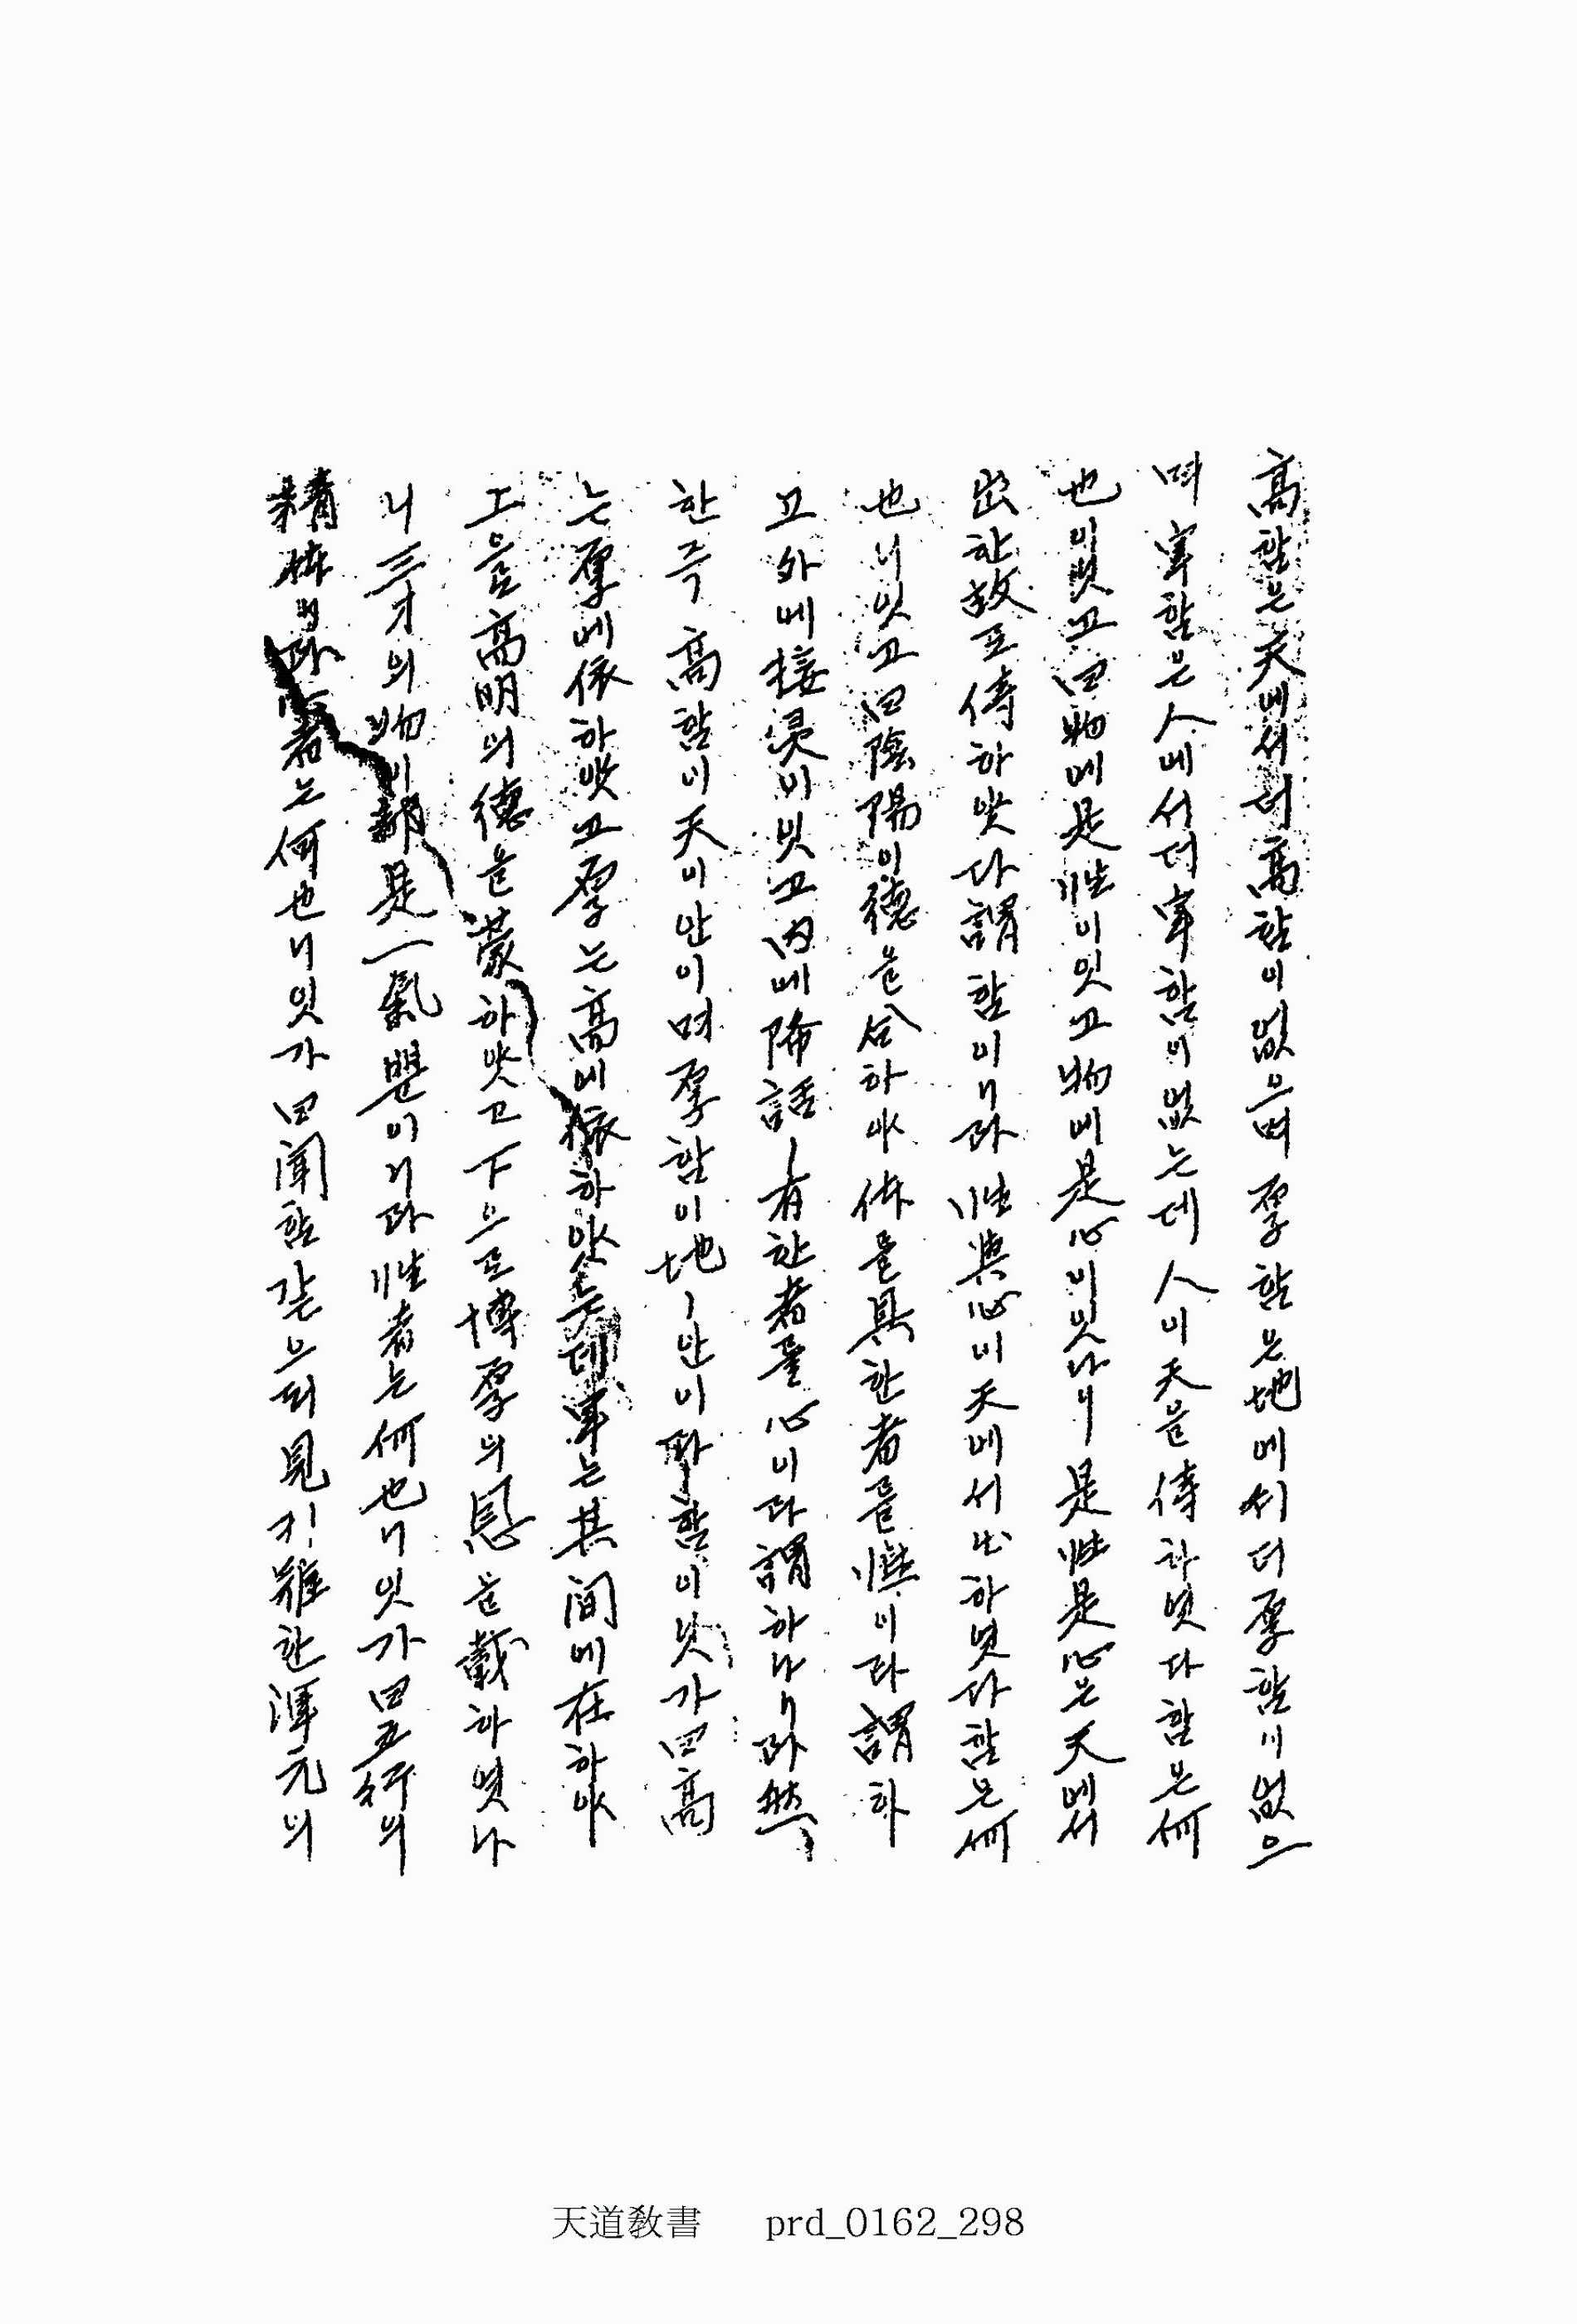 高함은天에서더高함이없으며厚함은地에서더厚함이없으
며 寧함은人에서더寧함이없는데 人이天을侍하엿다함은何
也이엿고曰物에是性이잇고物에是心이잇나니 是性是心은天에서
出한故로侍하얏다謂함이니라 性與心이天에서出하엿다함은何
也니잇고曰陰陽이德을合하야体를具한者를性이라謂하
고外에接灵이잇고內에降話ㅣ有한者를心이라謂하나니라然
한즉 高함이天이안이며厚함이地ㅣ안이라함이잇가曰高
는厚에依하얏고厚는高에依하얏는데寧는其間에在하야
上을高明의德을蒙하얏고下으로博厚의恩을載하엿나
니三才의物이都是一氣뿐이니라性者는何也니잇가曰五行의
精体이라 者는何也니잇가曰聞함같으되見키難한渾元의
天道敎書 prd_0162_298